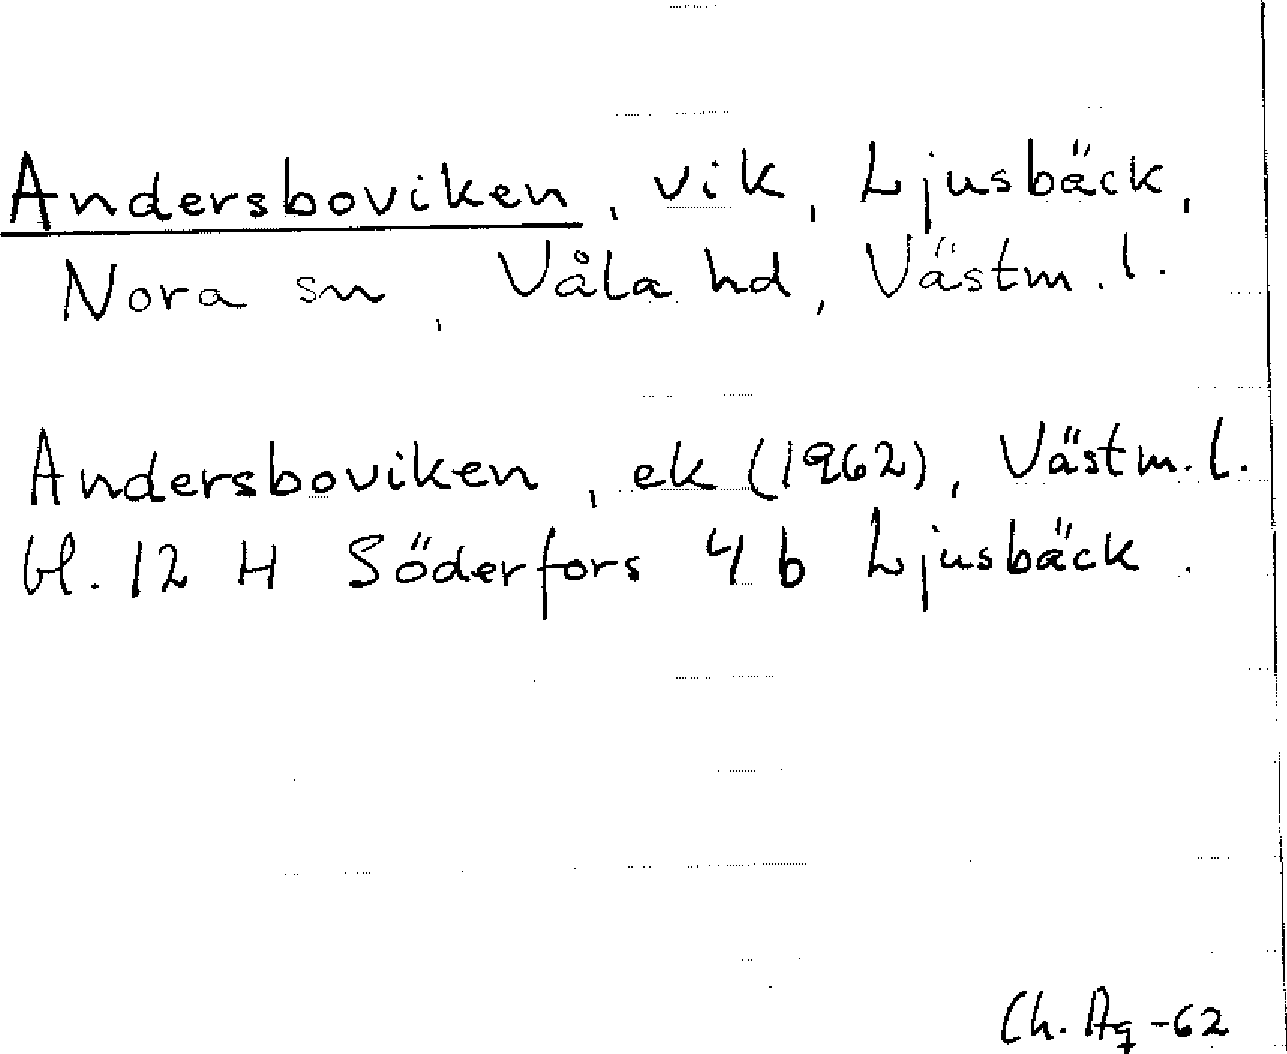 Andersboviken, vik, Ljusbäck,
Nora sn, Våla hd, Västm. l.
Andersboviken, ek (1962), Västm. l.
bl. 12 H Söderfors 4 b Ljusbäck.
Ch. Ag -62